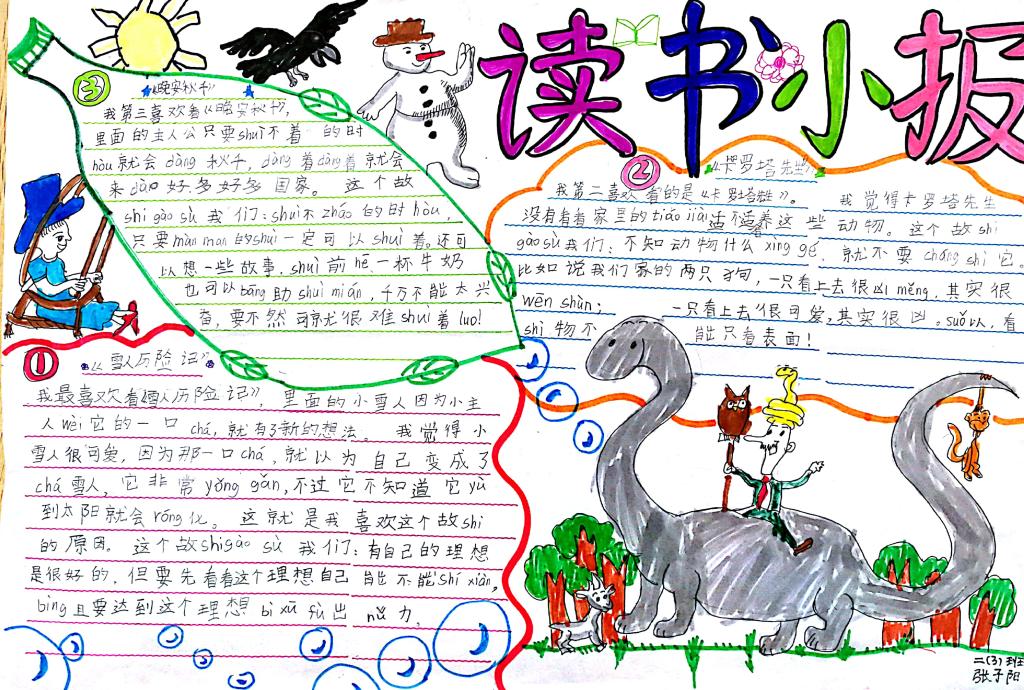 读书小报
③
《晚安秋千》
我第三喜欢看《晚安秋千》,
里面的主人公只要shuì不着的时
hòu就会dàng秋千,dàng着dàng着就会
来dào好多好多国家。这个故
shi gào sù我们:shuì不zháo的时hòu,
只要màn màn的shuì一定可以shuì着。还可
以想一些故事,shuì前hē一杯牛奶
也可以bāng助shuì mián,千万不能太兴
奋,要不然可就很难shuì着luo!
②
《卡罗塔先生》
我第二喜欢看的是《卡罗塔先生》。我觉得卡罗塔先生
没有看看家里的tiáo jiàn适不适养这些动物。这个故shi
gào sù我们:不知动物什么xìng gé,就不要cháng shì它。
比如说我们家的两只狗,一只看上去很凶měng,其实很
wēn shùn;一只看上去很可爱,其实很凶。suǒ以,看
shì物不能只看表面!
①
《雪人历险记》
我最喜欢看《雪人历险记》,里面的小雪人因为小主
人wèi它的一口chá,就有了新的想法。我觉得小
雪人很可爱,因为那一口chá,就以为自己变成了
chá雪人,它非常yǒng gǎn,不过它不知道它yù
到太阳就会róng化。这就是我喜欢这个故shi
的原因。这个故shi gào sù我们:有自己的理想
是很好的,但要先看看这个理想自己能不能shí xiàn,
bìng且要达到这个理想bì xū fù出nǔ力.
二(3)班
张子阳